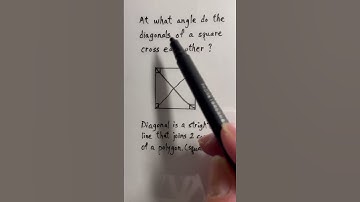 At what angle do the
diagonals of a square
cross each other ?
Diagonal is a stright
line that joins 2
of a polygon. (squ